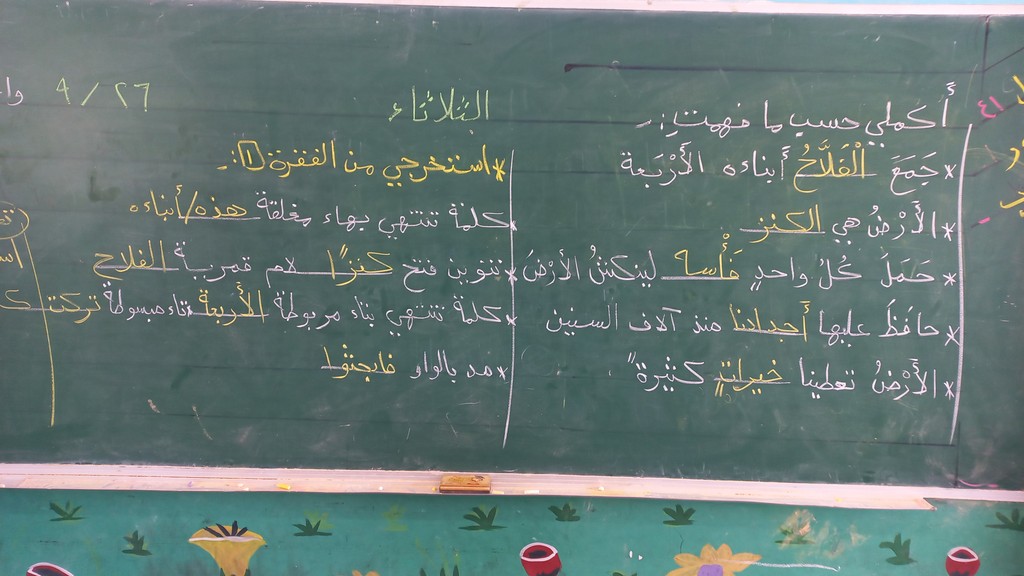 الثلاثاء
٢٦ / ٩
أكملي حسب ما فهمتِ :-
* جَمَعَ الْفَلَّاحُ أبناءه الأَرْبَعة
* الأَرْضُ هي الكنز
* حَمَلَ كُلُ واحدٍ فَأْسه لينكشُ الأرْضَ
* حافَظَ عليها أجدادنا منذ آلاف السنين
* الأَرْضُ تعطينا خيراتٍ كثيرةً
* استخرجي من الفقرة ١ :-
* كلمة تنتهي بهاء مغلقة هذه/أبناءه
* تنوين فتح كنزًا لام قمرية الفلاح
* كلمة تنتهي بتاء مربوطة الأربعة تاء مبسوطة تركت
* مد بالواو فابحثوا